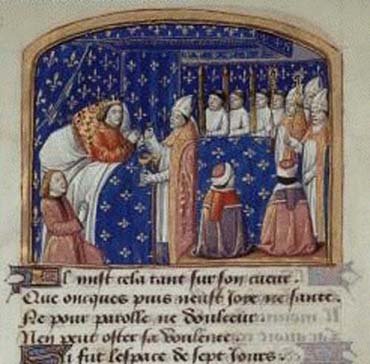 Il mist cela tant sur son cueur.
Que oncques puis neust joye ne sante.
Ne pour parolle ne doulceur
Nen peut oster sa voulente.
Si fut lespace de sept jours.